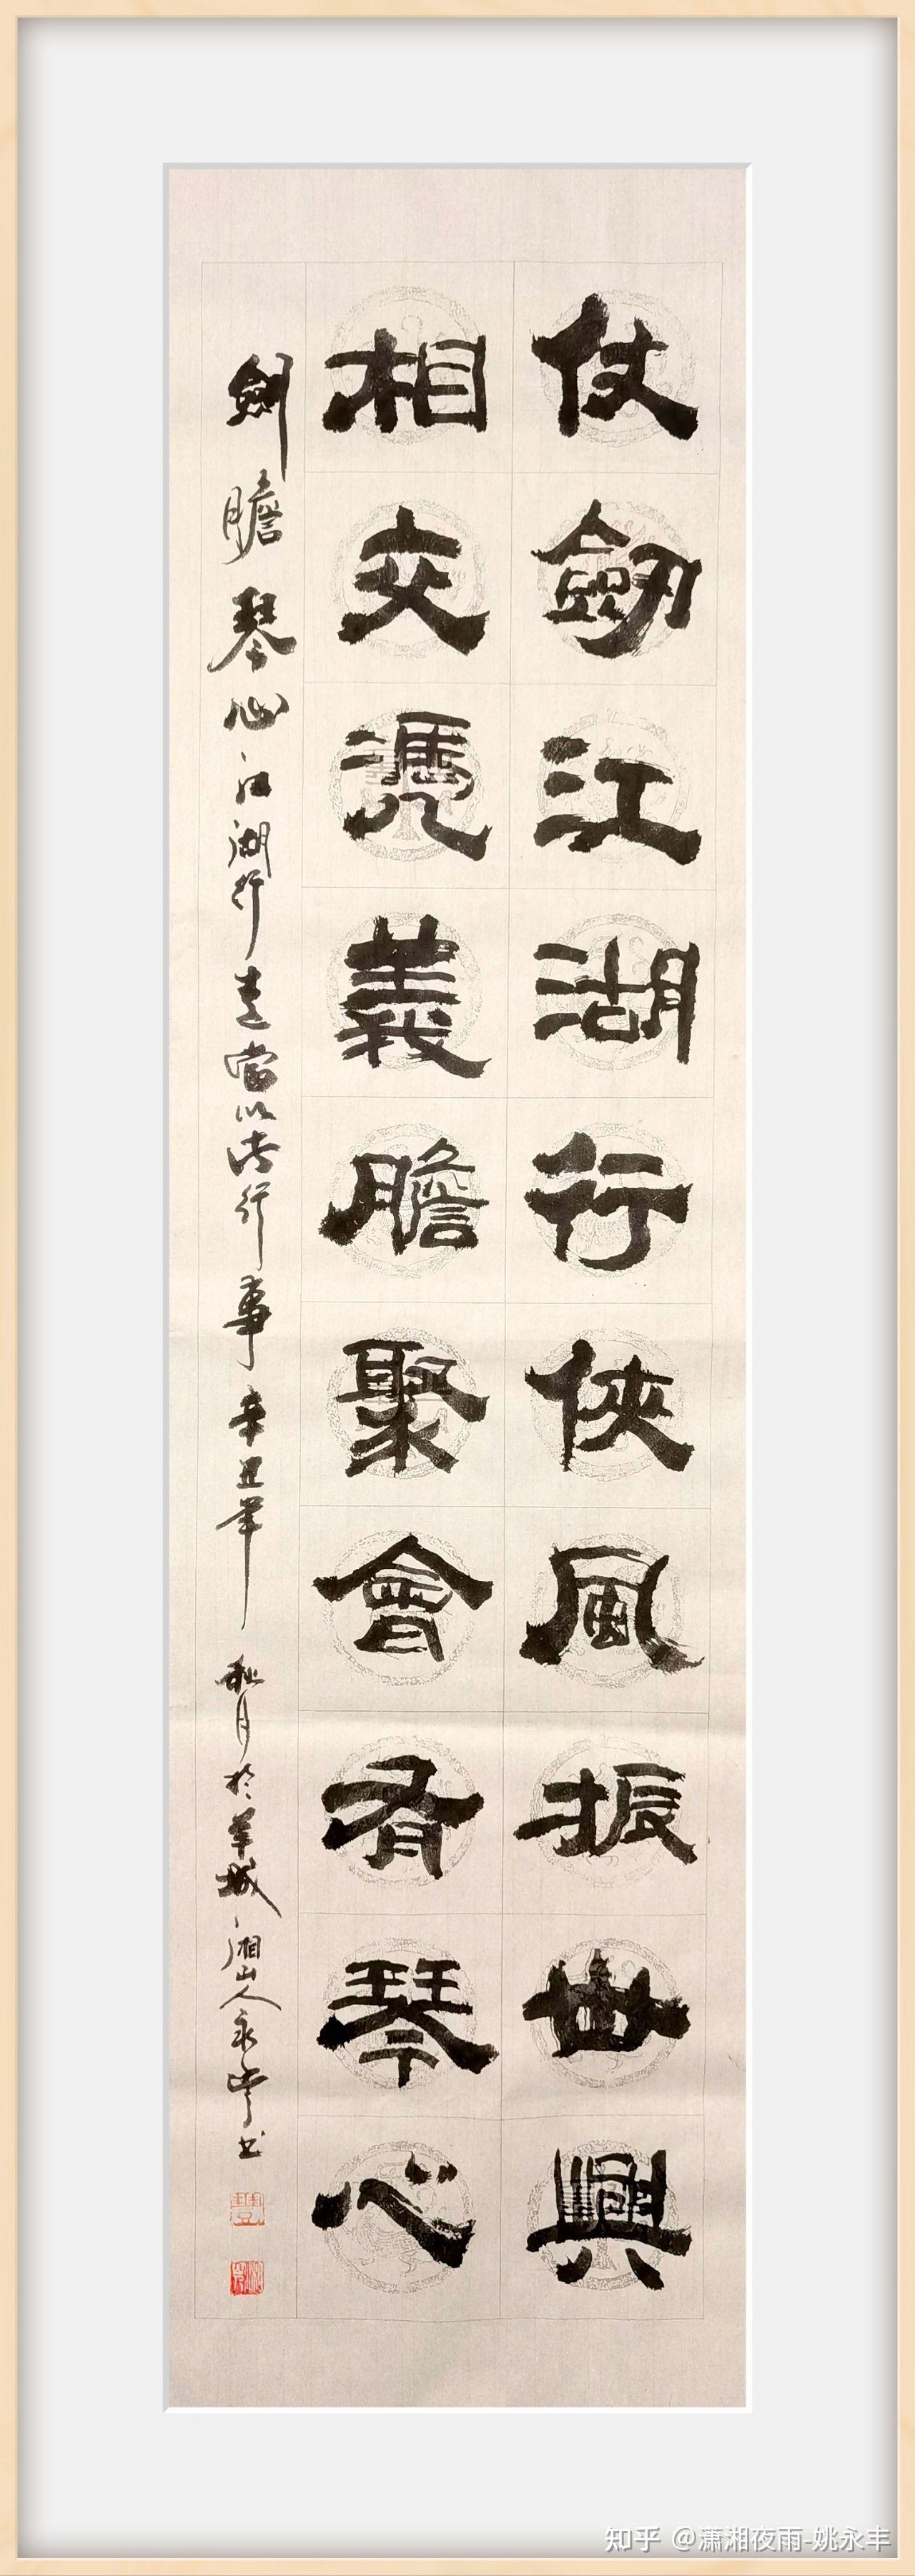 仗劒江湖行俠風振世興
相交凴義膽聚會有琴心
劍膽琴心江湖行走當以此行事辛丑年秋月於羊城湘山人永豐书
知乎 @潇湘夜雨-姚永丰